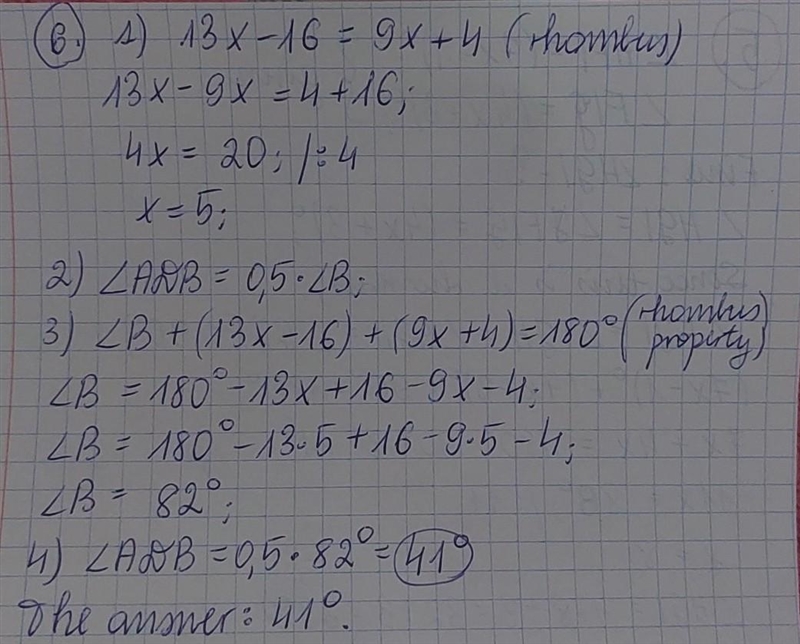 6. 1) 13x-16 = 9x+4 (rhombus)
13x-9x=4+16;
4x = 20; /:4
x=5;
2) ∠ADB = 0,5·∠B;
3) ∠B + (13x-16) + (9x+4) = 180° (rhombus property)
∠B = 180°-13x+16-9x-4;
∠B = 180°-13·5+16-9·5-4;
∠B = 82°;
4) ∠ADB = 0,5·82° = 41°
The answer: 41°.